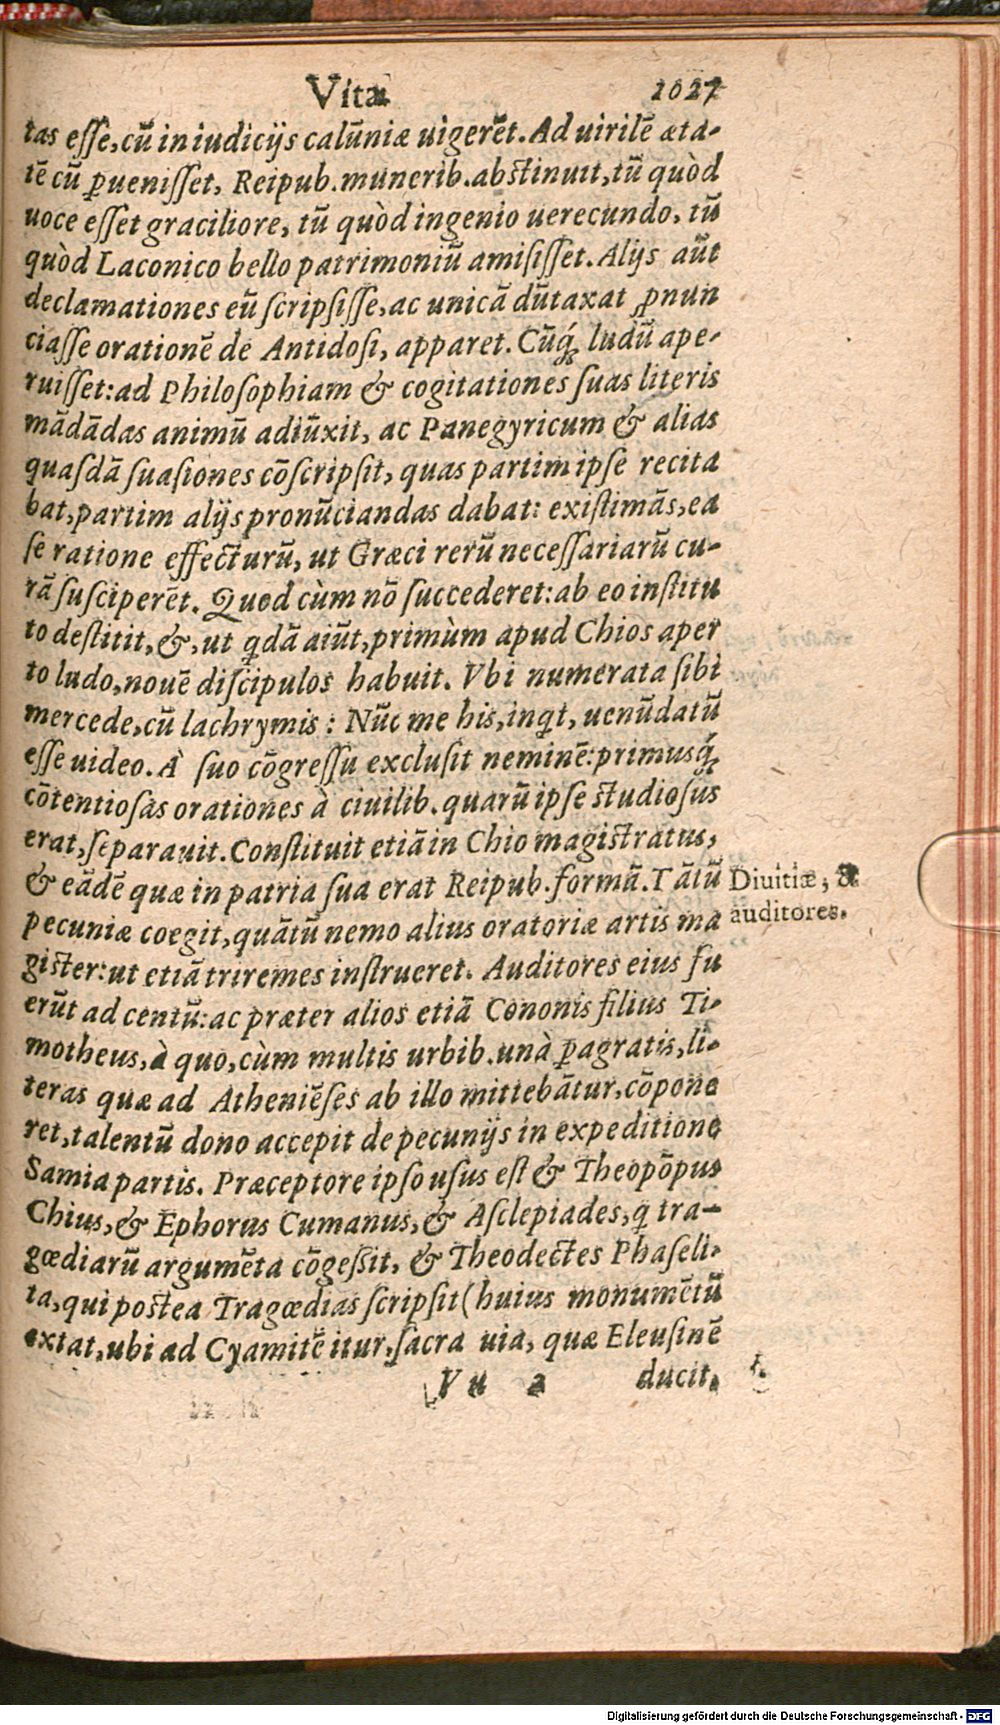 Vita 1027
tas eſſe, cū in iudicijs calūniæ uigerēt. Ad uirilē æta-
tē cū ꝑueniſſet, Reipub. munerib. abſtinuit, tū quòd
uoce eſſet graciliore, tū quòd ingenio uerecundo, tū
quòd Laconico bello patrimoniū amiſiſſet. Alijs aūt
declamationes eū ſcripſiſſe, ac unicā dūtaxat ꝓnun
ciaſſe orationē de Antidoſi, apparet. Cūq́; ludū ape-
ruiſſet: ad Philoſophiam & cogitationes ſuas literis
mādādas animū adiūxit, ac Panegyricum & alias
quaſdā ſuaſiones cōſcripſit, quas partim ipſe recita
bat, partim alijs pronūciandas dabat: exiſtimās, ea
ſe ratione effecturū, ut Græci rerū neceſſariarū cu-
rā ſuſciperēt. Quod cùm nō ſuccederet: ab eo inſtitu
to deſtitit, &, ut qdā aiūt, primùm apud Chios aper
to ludo, nouē diſcipulos habuit. Vbi numerata ſibi
mercede, cū lachrymis: Nūc me his, inqt, uenūdatū
eſſe uideo. À ſuo cōgreſſu excluſit neminē: primusq́;
cōtentioſas orationes à ciuilib. quarū ipſe ſtudioſus
erat, ſeparauit. Conſtituit etiā in Chio magiſtratus,
& eādē quæ in patria ſua erat Reipub. formā. Tātū
pecuniæ coegit, quātū nemo alius oratoriæ artis ma
giſter: ut etiā triremes inſtrueret. Auditores eius fu
erūt ad centū: ac præter alios etiā Cononis filius Ti-
motheus, à quo, cùm multis urbib. unà ꝑagratis, li-
teras quæ ad Atheniēſes ab illo mittebātur, cōpone
ret, talentū dono accepit de pecunijs in expeditione
Samia partis. Præceptore ipſo uſus eſt & Theopōpus
Chius, & Ephorus Cumanus, & Aſclepiades, q tra-
gœdiarū argumēta cōgeſſit, & Theodectes Phaſeli-
ta, qui poſtea Tragœdias ſcripſit (huius monumētū
extat, ubi ad Cyamitē itur, ſacra uia, quæ Eleuſinē
Vu 2 ducit,
Diuitiæ, &
auditores.
Digitalisierung gefördert durch die Deutsche Forschungsgemeinschaft - DFG